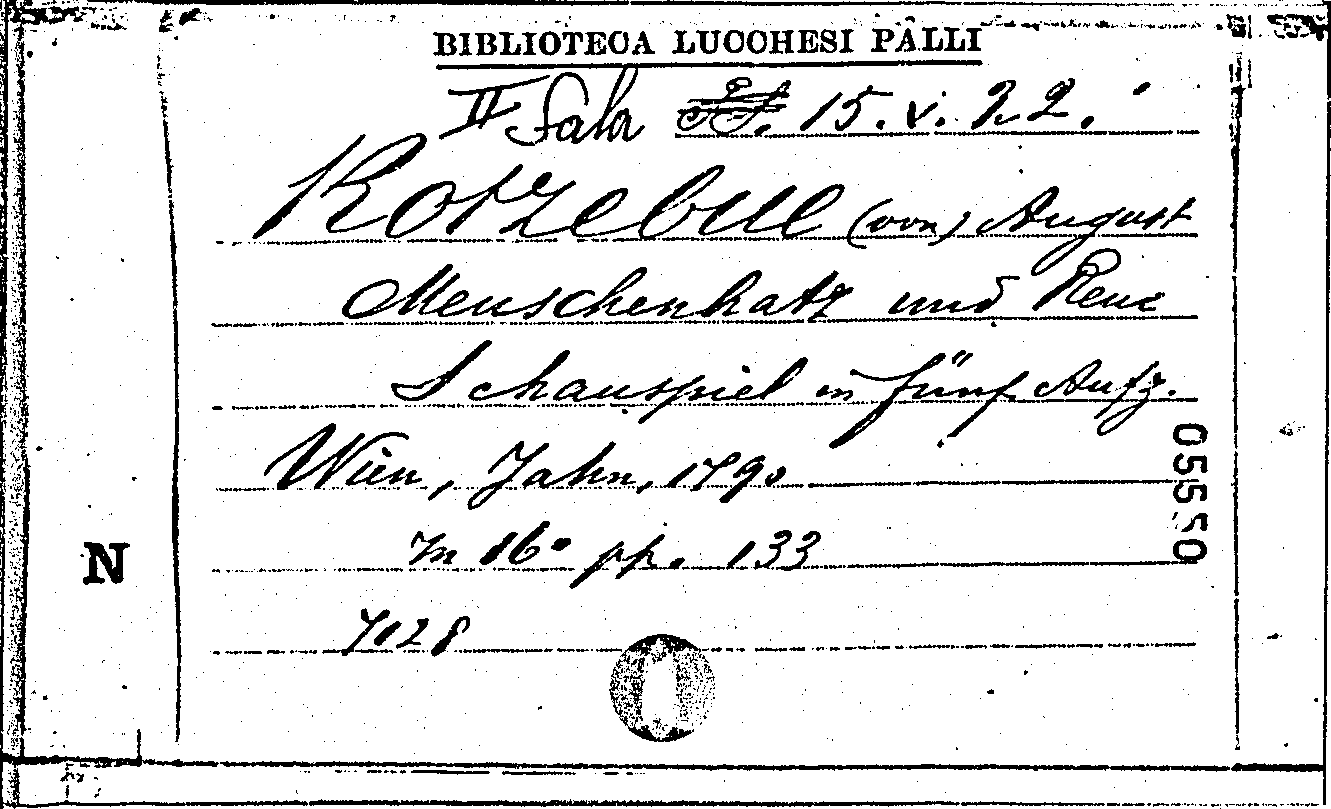 BIBLIOTECA LUCCHESI PALLI
II Sala 15. v. 22.
Kotzebue (von) August
Menschenhatz und Reue
Schauspiel in fünf Aufz.
Wien, Jahn, 1790
In 16° pp. 133
N
7028
05550